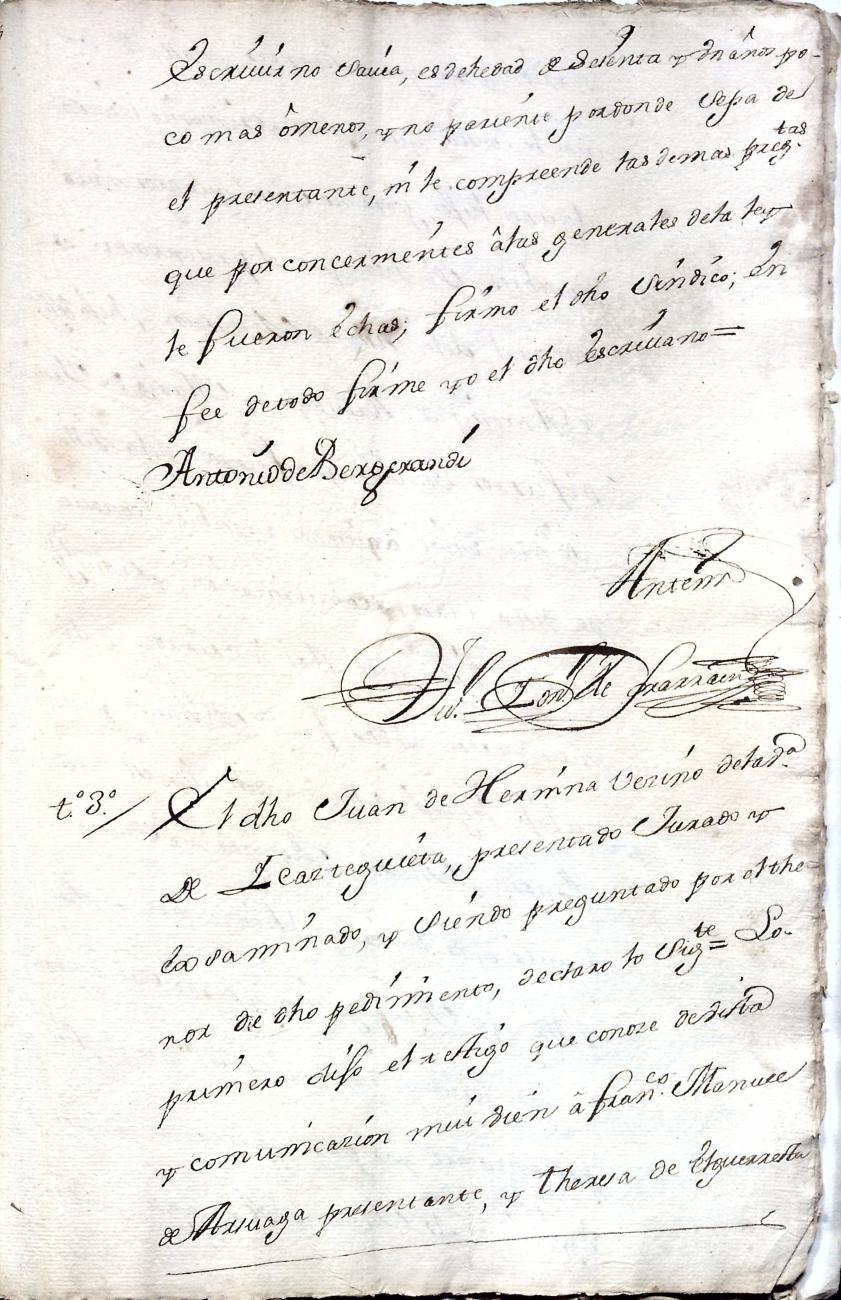 Escriuir no Sauia, es de hedad de Setenta y Un años po-
co mas ô menos, y no pariente por donde Sepa de
el presentante, ni le compreende las demas preg.tas
que por concernientes â las generales de la ley
le fueron echas; firmo el dho Sindico; en
fee de todo firme yo el dho Escriuano=
Antonio de
Antemi
t.o 3.o / El dho Juan de Hermna Vezino de la d.a
de Icazteguieta, presentado Jurado y
Exsaminado, y Siendo preguntado por el the-
nor de dho pedimiento, declaro lo Sig.te= Lo
primero dijo el testigo que conoze de vista
y comunicazion mui bien â Fran.co Manuel
de Arsuaga presentante, y Theresa de